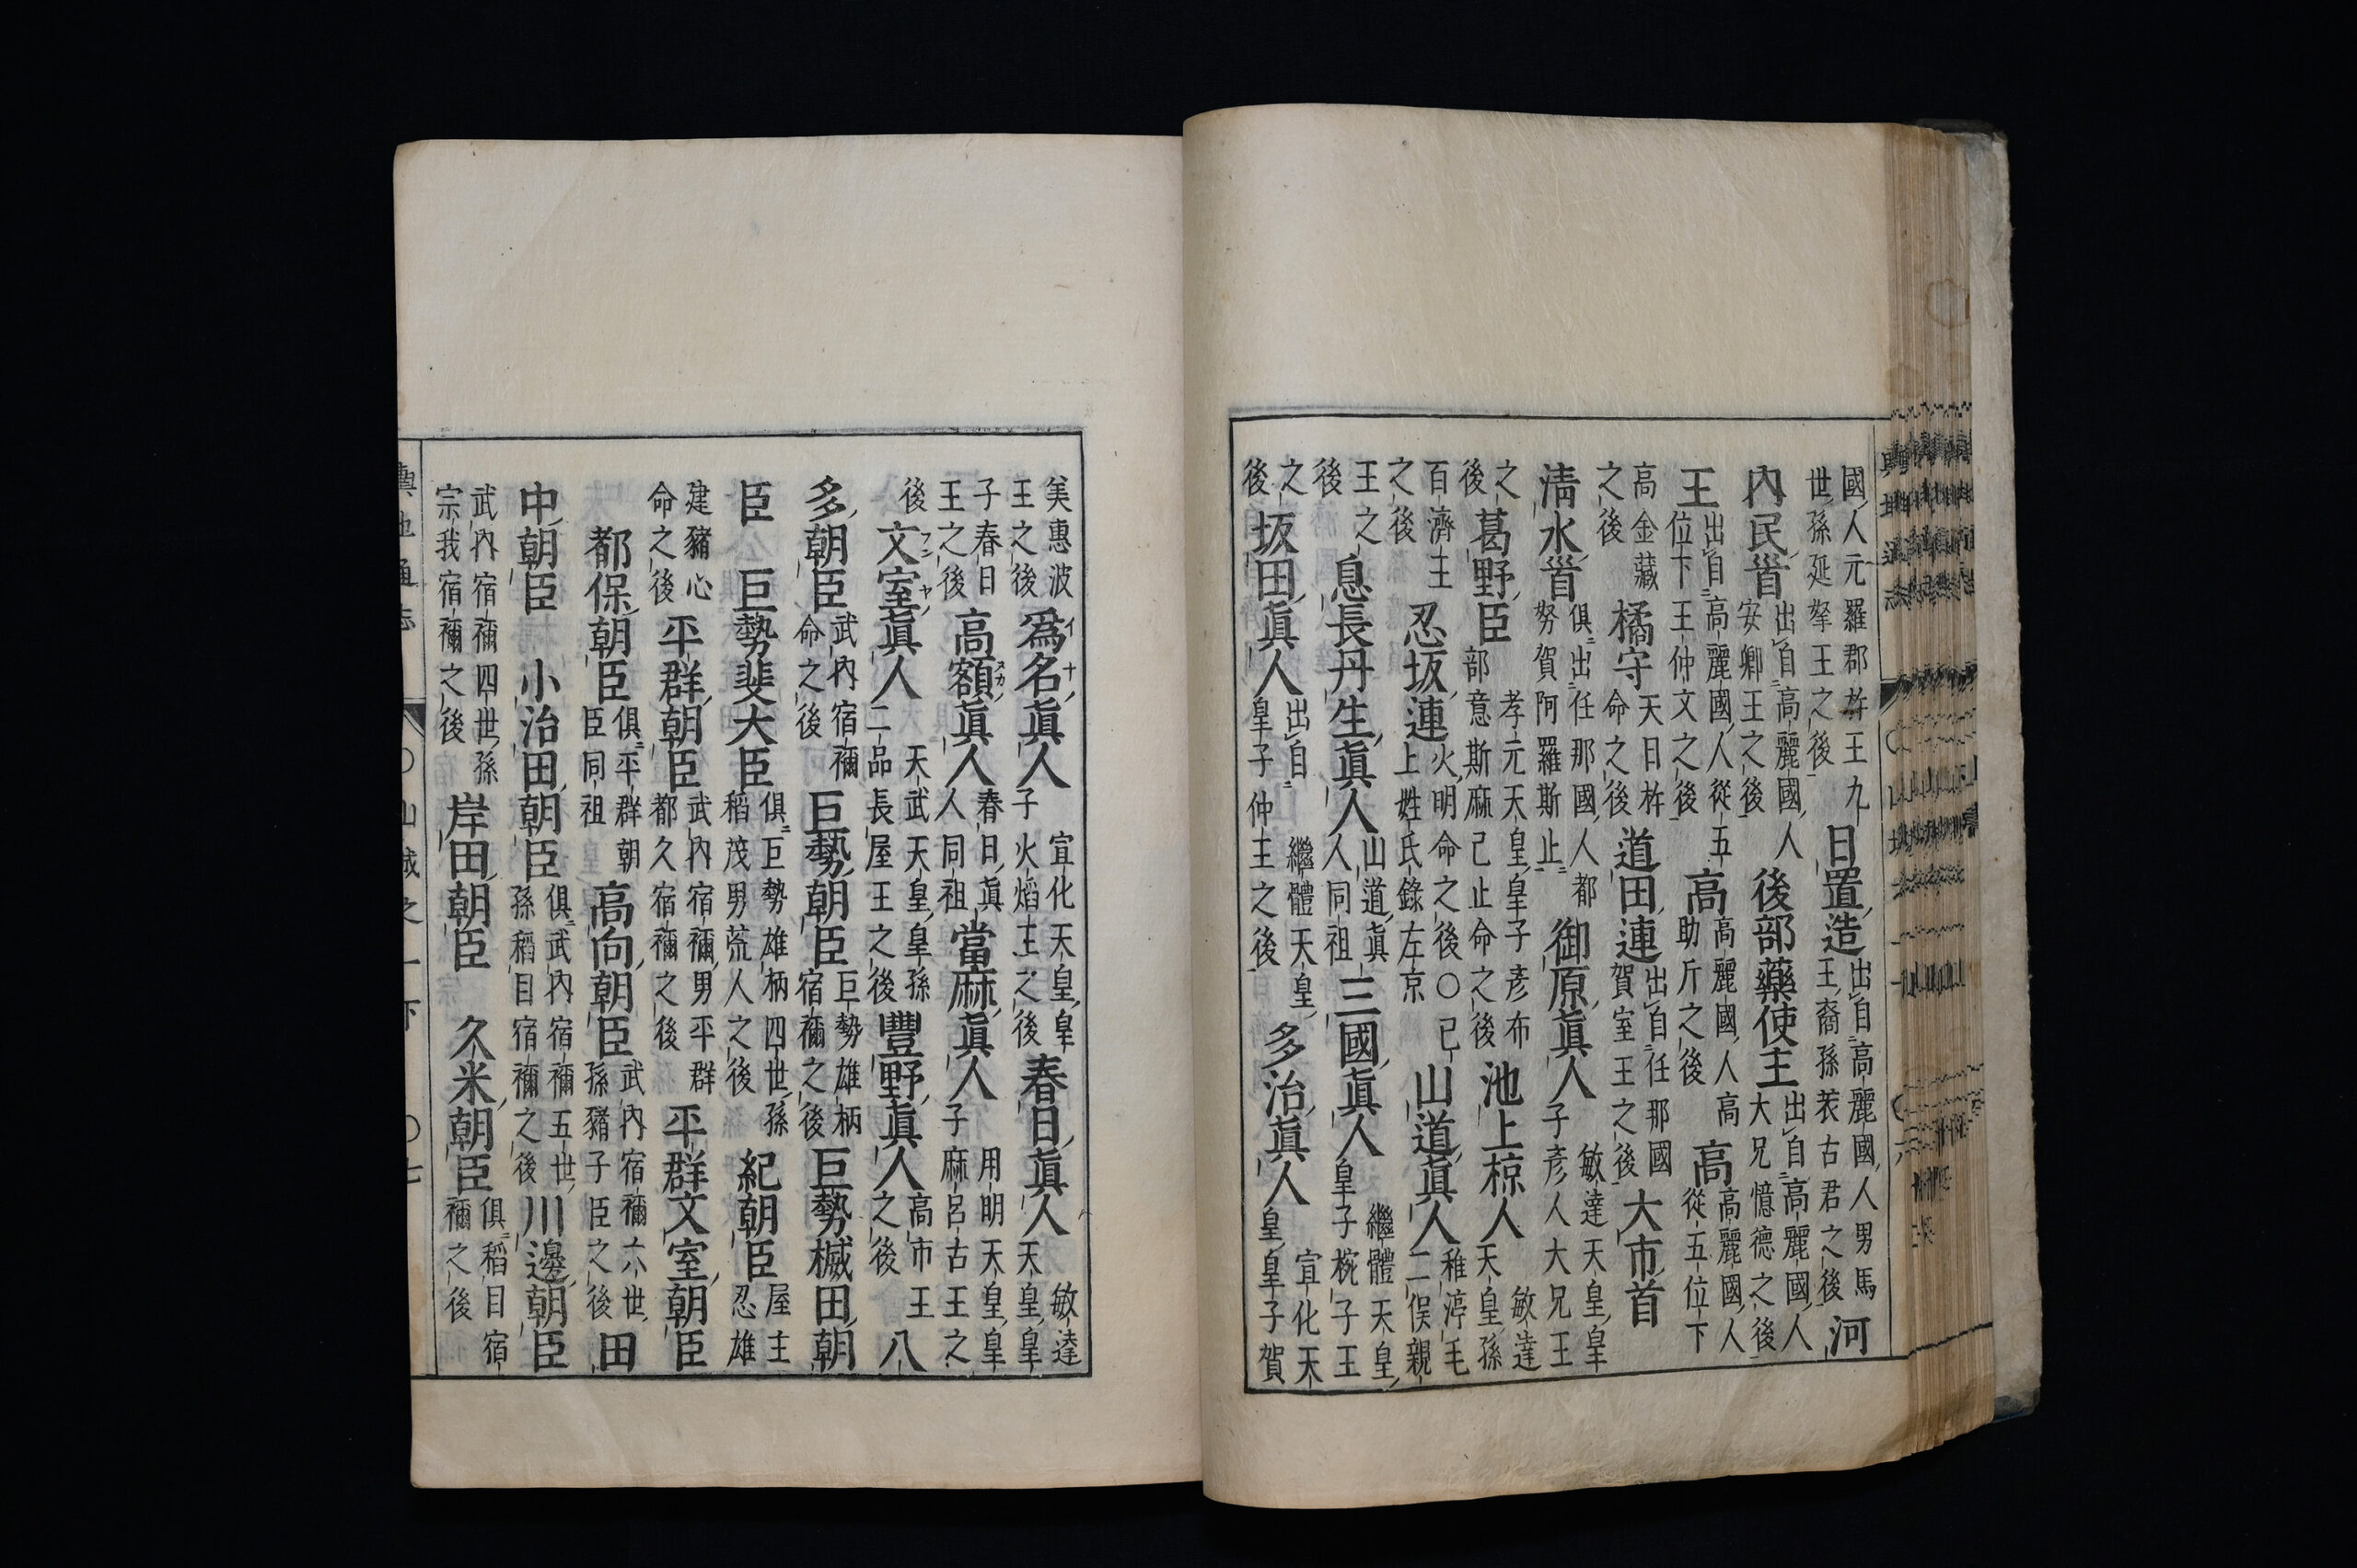 國人元羅郡杵王九世孫延拏王之後 日置造 出自高麗國人男馬王裔孫古君之後 河
内民首 出自高麗國人安卿王之後 後部藥使主 出自高麗國人大兄憶德之後
王 出自高麗國人從五位下王仲文之後 高 高麗國人高助斤之後 高 高麗國人從五位下
高金藏之後 橘守 天日杵命之後 道田連 出自任那國賀室王之後 大市首
清水首 俱出任那國人都努賀阿羅斯止 御原眞人 敏達天皇皇子彦人大兄王
之後 葛野臣 孝元天皇皇子彦布部意斯麻己止命之後 池上椋人 敏達天皇孫
百濟王之後 忍坂連 火明命之後○已上姓氏錄左京 山道眞人 稚渟毛二俣親
王之後 息長丹生眞人 山道眞人同祖 三國眞人 繼體天皇皇子椀子王
之後 坂田眞人 出自繼體天皇皇子仲王之後 多治眞人 宣化天皇皇子賀
美惠波王之後 爲名眞人 宣化天皇皇子火焔王之後 春日眞人 敏達天皇皇
子春日王之後 高額眞人 春日眞人同祖 當麻眞人 用明天皇皇子麻呂古王之
後 文室眞人 天武天皇皇孫二品長屋王之後 豐野眞人 高市王之後 八
多朝臣 武内宿禰命之後 巨勢朝臣 巨勢雄柄宿禰之後 巨勢槭田朝
臣 巨勢斐大臣 俱巨勢雄柄四世孫稻茂男荒人之後 紀朝臣 屋主忍雄
建豬心命之後 平群朝臣 武内宿禰男平群都久宿禰之後 平群文室朝臣
都保朝臣 俱平群朝臣同祖 高向朝臣 武内宿禰六世孫豬子臣之後 田
中朝臣 小治田朝臣 俱武内宿禰五世孫稻目宿禰之後 川邊朝臣
武内宿禰四世孫宗我宿禰之後 岸田朝臣 久米朝臣 俱稻目宿禰之後
輿地通志 ○山城之一下 ○七